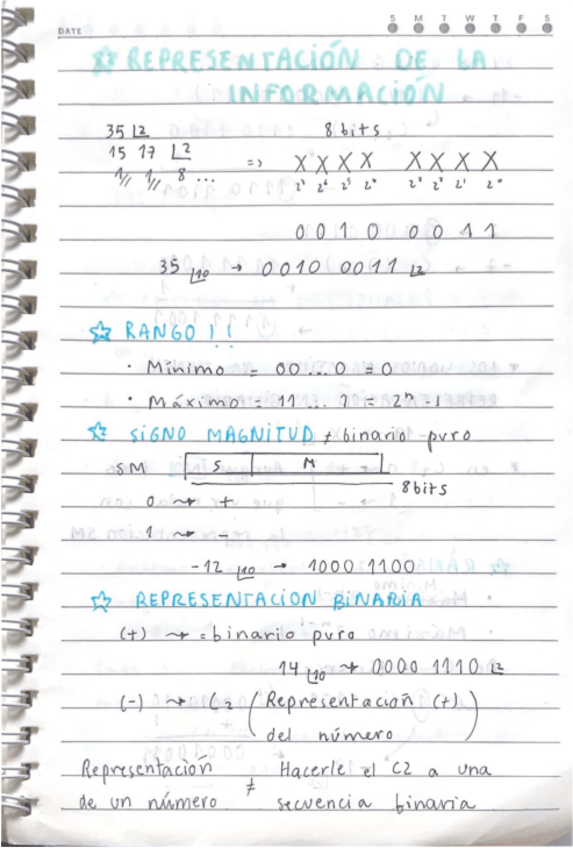 DATE
S M T W T F S
REPRESENTACIÓN DE LA
INFORMACIÓN
35 |2
15 17 |2
1// 1// 8 ...
8 bits
=> X X X X X X X X
0 0 1 0 0 0 1 1
35 |10 → 0010 0011 |2
RANGO!!
· Mínimo = 00...0 = 0
· Máximo = 11...1 = 2ⁿ-1
SIGNO MAGNITUD ≠ binario puro
SM S M
8 bits
0 ~→ +
1 ~→ -
-12 |10 → 1000 1100
REPRESENTACIÓN BINARIA
(+) ~→ = binario puro
14 |10 ~→ 0000 1110 |2
(-) ~→ C2 (Representación (+)
del número)
Representación ≠ Hacerle el C2 a una
de un número secuencia binaria